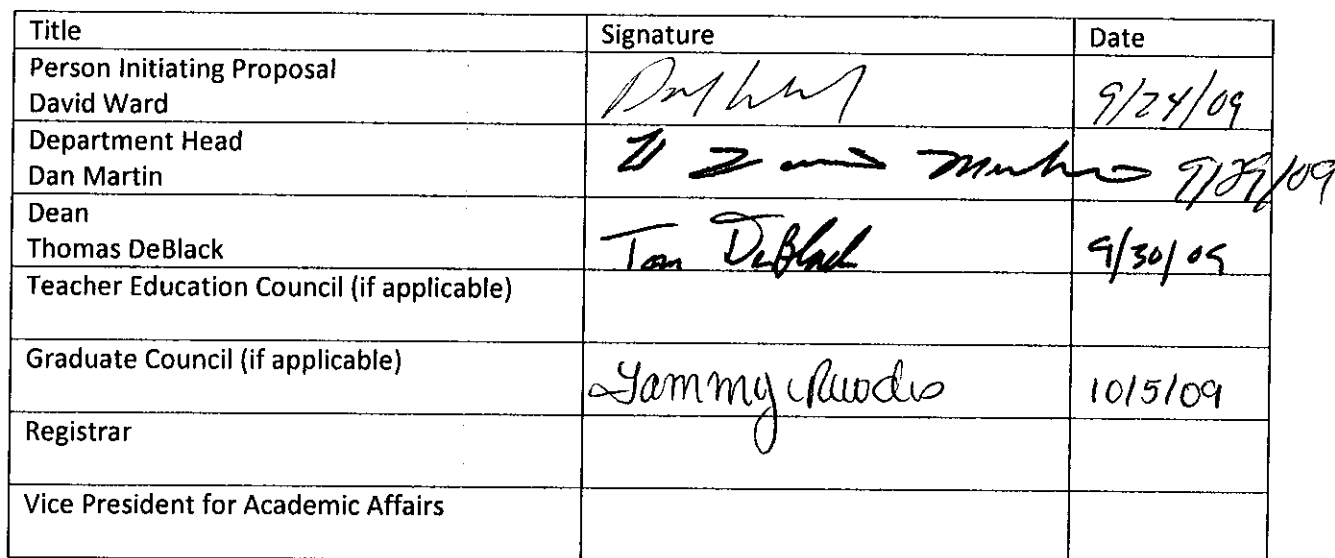 Title Signature Date
Person Initiating Proposal
David Ward 9/24/09
Department Head
Dan Martin 9/29/09
Dean
Thomas DeBlack Tom DeBlack 9/30/09
Teacher Education Council (if applicable)
Graduate Council (if applicable)
Tammy Rhodes 10/5/09
Registrar
Vice President for Academic Affairs